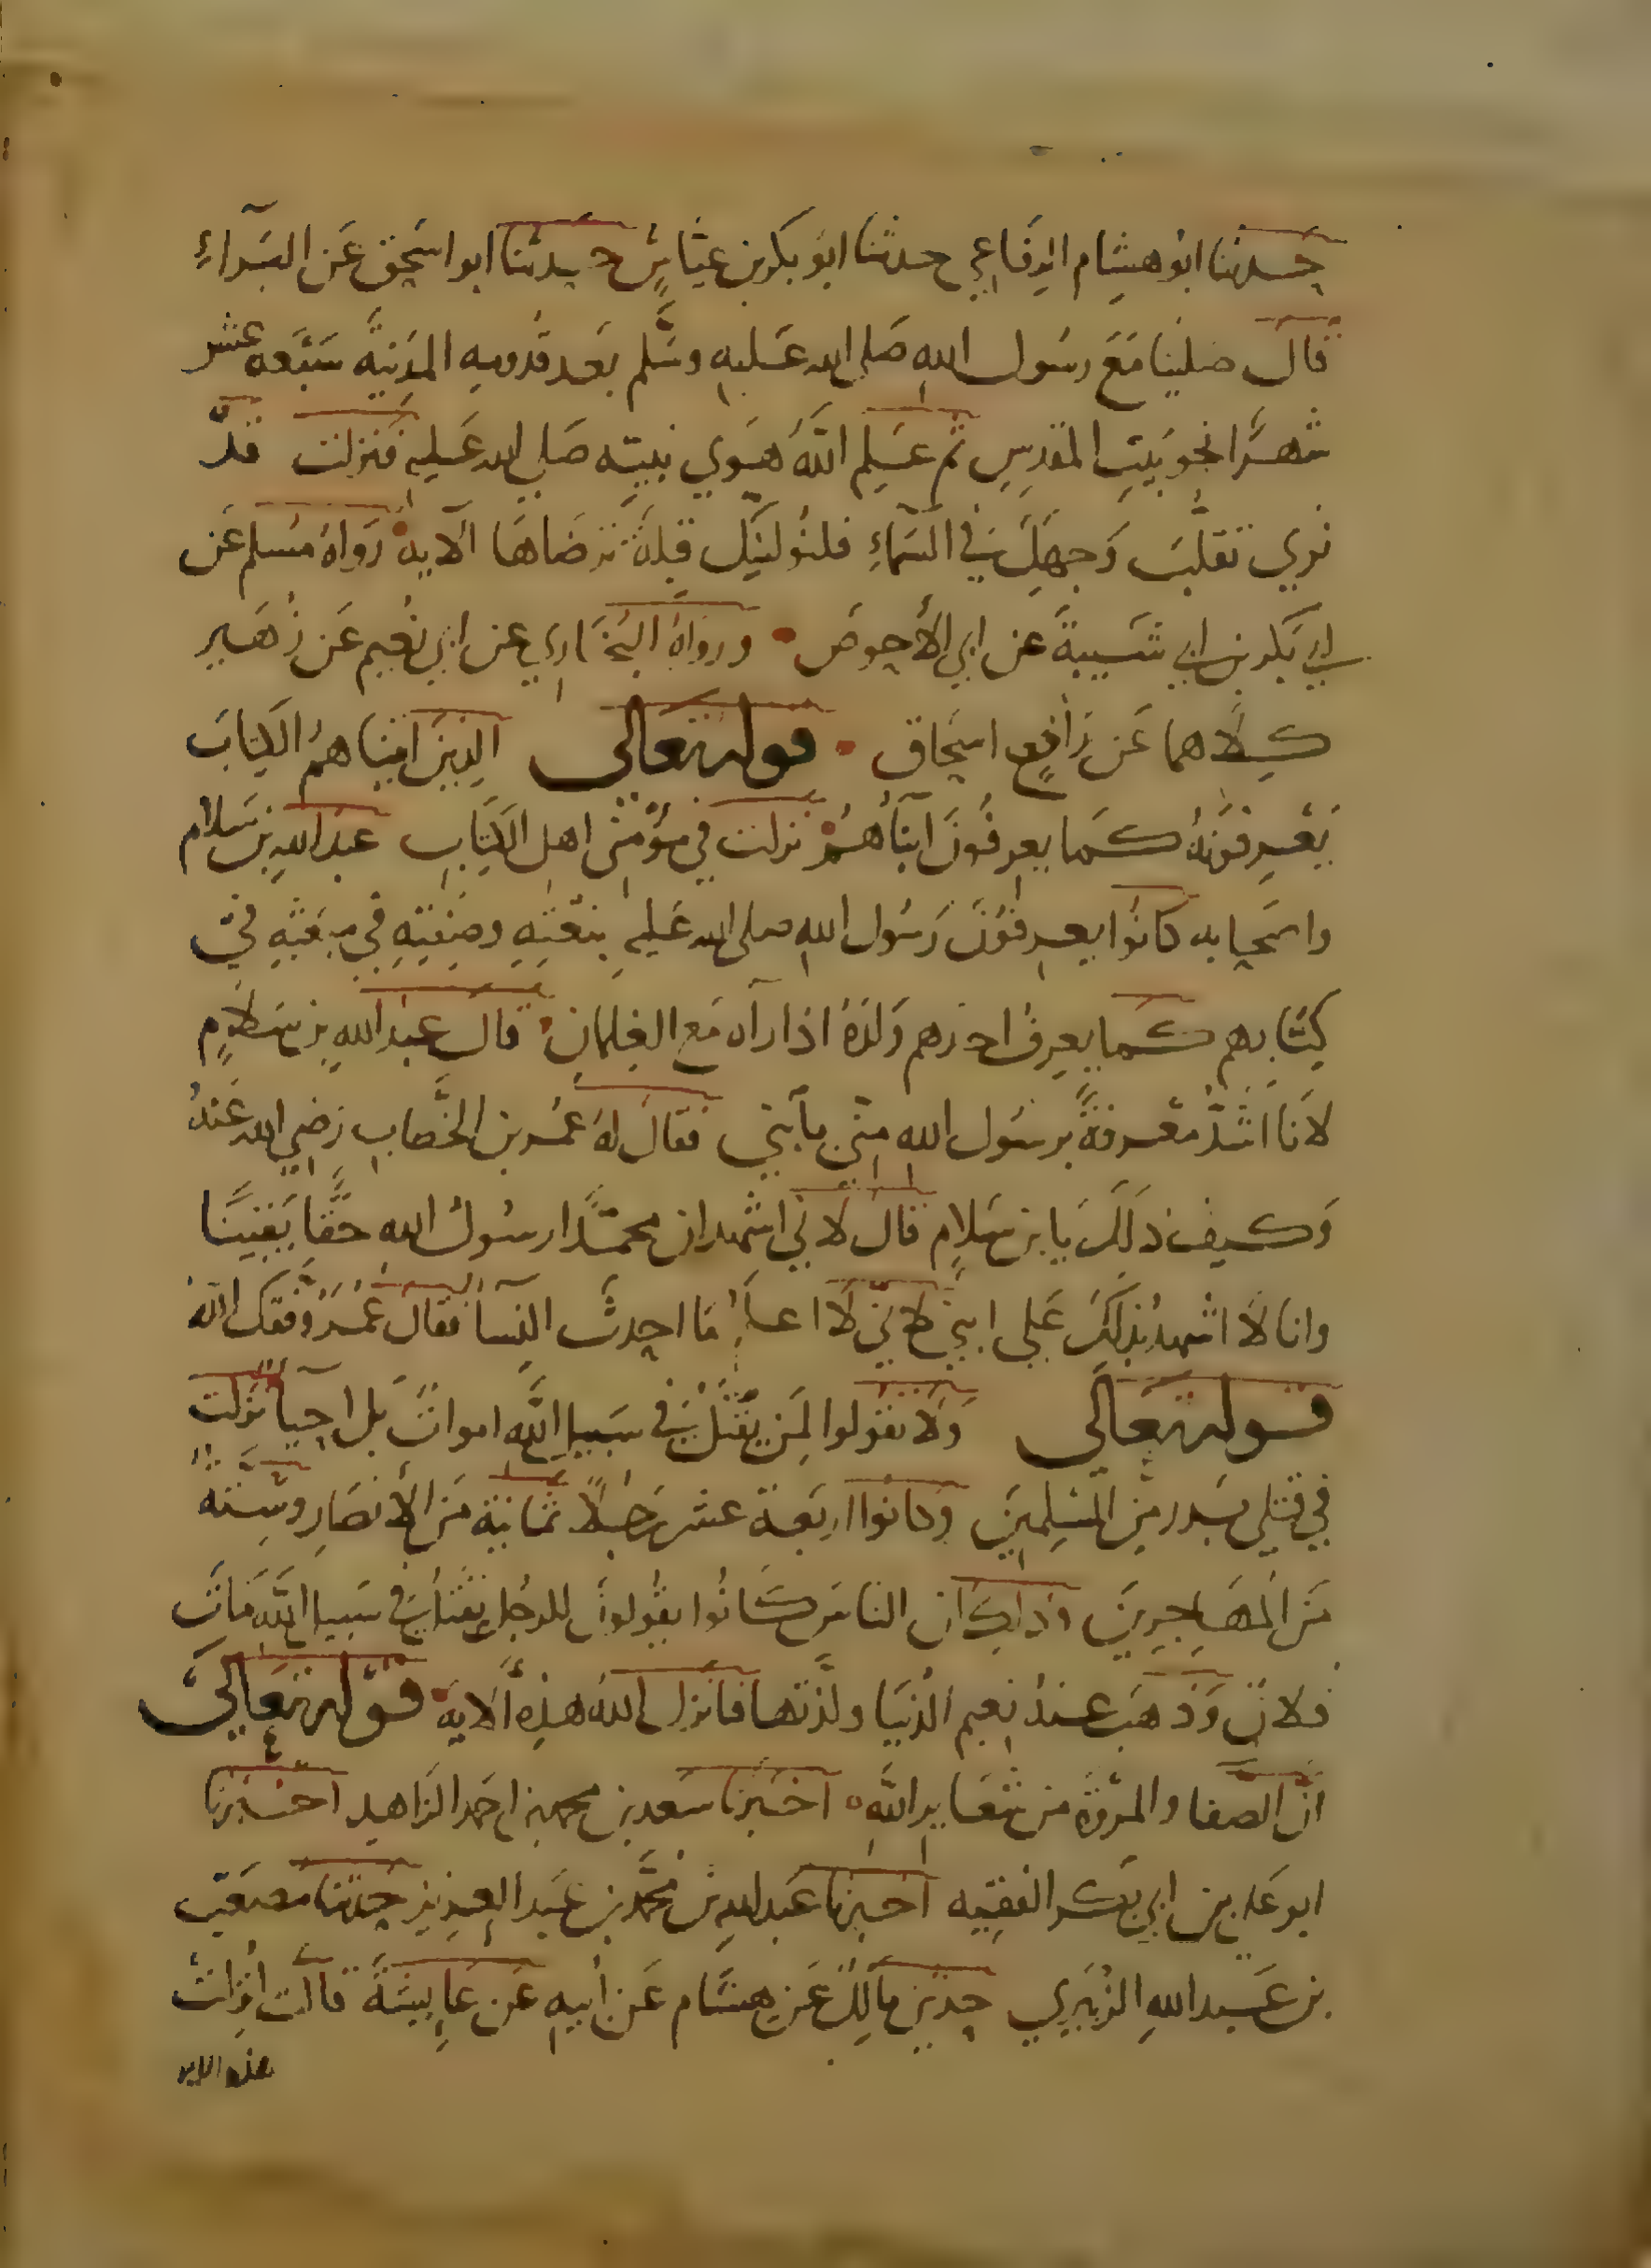 حدثنا ابو هشام الرفاعي حدثنا ابو بكر بن عياش حدثنا ابو اسحق عن البراء
قال صلينا مع رسول الله صلى الله عليه وسلم بعد قدومه المدينة سبعه عشر
شهرا نحو بيت المقدس ثم علم الله هوي نبيه صلى الله عليه فنزلت قد
نري تقلب وجهك في السماء فلنولينك قبلة ترضاها الآية رواه مسلم عن
ابي بكر بن ابي شيبة عن ابي الأحوص ورواه البخاري عن ابي نعيم عن زهير
كلاهما عن اسحاق قوله تعالى الذين اتيناهم الكتاب
يعرفونه كما يعرفون ابناهم نزلت في مؤمني اهل الكتاب عبد الله بن سلام
واصحابه كانوا يعرفون رسول الله صلى الله عليه بنعته وصفته في مبعثه في
كتابهم كما يعرف احدهم ولده اذا رآه مع الغلمان قال عبد الله بن سلام
لانا اشد معرفة برسول الله مني بابني فقال له عمر بن الخطاب رضي الله عنه
وكيف ذلك يا بن سلام قال لاني اشهد ان محمدا رسول الله حقا يقينا
وانا لا اشهد بذلك على ابني لاني لا اعلم ما احدث النسا فقال عمر وفقك الله
قوله تعالى ولا تقولوا لمن يقتل في سبيل الله اموات بل احيا نزلت
في قتلى بدر من المسلمين وكانوا اربعة عشر رجلا ثمانية من الأنصار وستة
من المهاجرين وذلك ان الناس كانوا يقولون للرجل يقتل في سبيل الله مات
فلان وذهب عنه نعيم الدنيا ولذتها فانزل الله هذه الآية قوله تعالى
ان الصفا والمروة من شعاير الله اخبرنا سعد بن محمد بن احمد الزاهد اخبرنا
ابو علي بن ابي بكر الفقيه اخبرنا عبد الله بن محمد بن عبد العزيز حدثنا مصعب
بن عبد الله الزبيري حدثني مالك عن هشام عن ابيه عن عايشة قالت أنزلت
هذه الايه